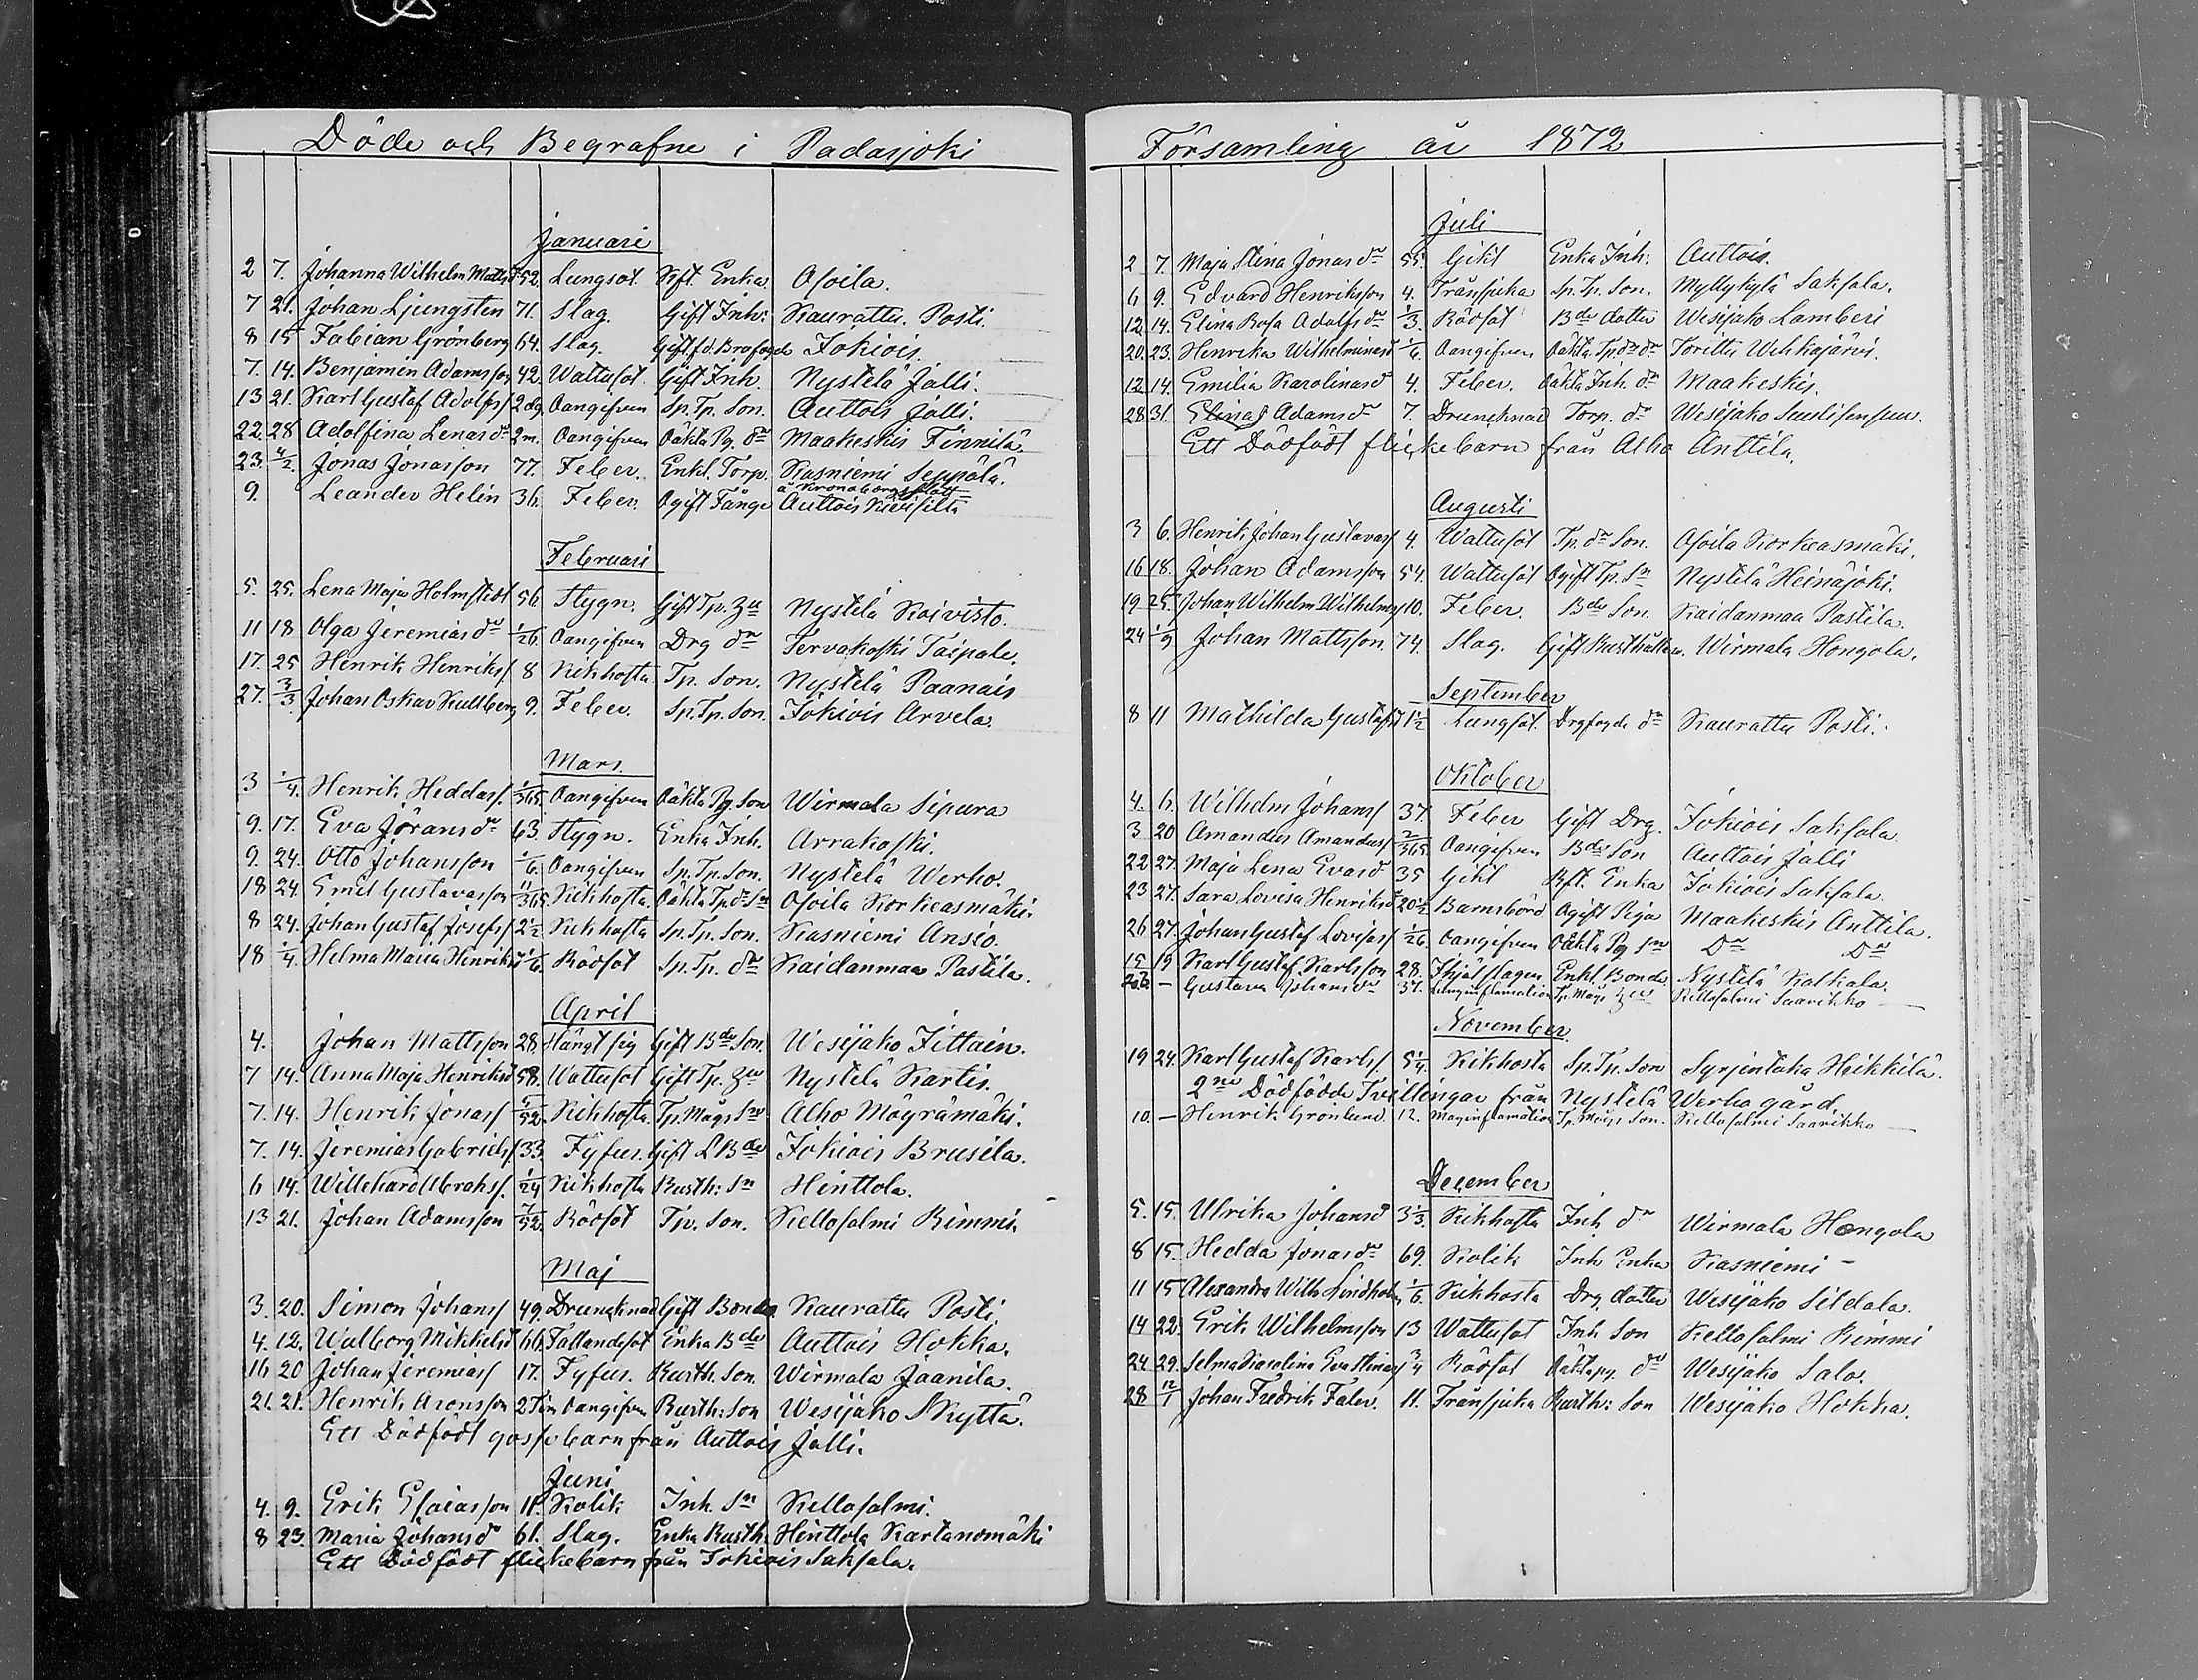 Döde och Begrafne i Padasjoki
Januari
2 7. Johanna Wilhelm Mattsdr 52. Lungsot Rft. Enka Osoila.
7 21. Johan Ljungsten 71. Slag. Gift Inh: Kaurattu Posti.
8 15 Fabian Grönberg 64. Slag. Gift f.d. Brofogde Jokiois
7. 14. Benjamin Adamsson 42. Wattusot Gift Inh. Nystelä Jälli.
13 21. Karl Gustaf Adolfss 2 dg. Oangifven Sp. Tp. Son. Auttois Jälli.
22. 28 Adolfina Lenasdr 2 m. Oangifven Oäkta Pg. dr Maakeskis Finnilä.
23. 4/2. Jonas Jonasson 77. Feber. Enkl. Torp. Kasniemi Seppälä.
9. Leander Helin 36. Feber. Ogift Fånge Auttois Kivisilta
å Kronoborgs slott
Februari
5. 25. Lena Maja Holmstedt 56 Stygn. Gift Tp. Hu Nystelä Koivisto.
11 18 Olga Jeremiasdr 1/26. Oangifven Drg dr Tervakoski Taipale.
17. 25 Henrik Henrikss 8 Kikhosta Tp. Son. Nystelä Paanais
27. 3/3. Johan Oskar Kullberg 9. Feber. Sp. Tp. Son. Jokiois Arvela.
Mars.
3 1/4. Henrik Heddass. 1/365. Oangifven Oäkta Pg. Son Wirmala Sipura
9. 17. Eva Jöransdr 63. Stygn. Enka Inh. Arrakoski.
9. 24. Otto Johansson 1/6. Oangifven Sp. Tp. Son. Nystelä Werho.
18 24. Emil Gustavasson 11/365. Kikhosta. Oäkta Tp. dr Sn Osoila Korkeasmäki.
8 24. Johan Gustaf Josefss 2 1/2 Kikhosta Sp. Tp. Son. Kasniemi Ansio.
18 1/4. Helma Maria Henriksd 1/6. Rödsot Sp. Tp. dr Kaidanmaa Pastila.
April
4. Johan Mattsson 28. Hängt sig Gift Bde Son. Wesijako Jittain.
7 14. Anna Maja Henriksd 58. Wattusot Gift Tp. Hu Nystelä Kartis.
7. 14. Henrik Jonass 5/52. Kikhosta. Tp. Mågs Sn Alho Mäyrämäki.
7. 14. Jeremias Gabrielss 33 Fyfus. Gift L Bde Jokiois Brusila.
6 14. Willehard Abrahs. 1/24 Kikhosta Rusth: Sn Hinttola.
13 21. Johan Adamsson 7/52. Rödsot Tp. Son. Kellosalmi Rimmi.
Maj
3. 20. Simon Johanss 49. Drunknad Gift Bonde Kaurattu Posti.
4. 12. Walborg Mikkelsd 66. Fallandesot Enka Bde Auttois Hokka.
16 20 Johan Jeremiass 17. Fyfus. Rusth. Son. Wirmala Jaanila.
21. 21. Henrik Aronsson 2 Tim Oangifven Rusth: Son Wesijako Skyttä.
Ett Dödfödt gossebarn från Auttois Jälli.
Juni
4. 9. Erik Esaiasson 11. Kolik Inh. Sn Kellosalmi.
8 23. Maria Johansdr 61. Slag. Enka Rusth. Hinttola Kartanomäki
Ett Dödfödt flickebarn från Jokiois Saksala.
Församling år 1872
Juli
2 7. Maja Stina Jonasdr 55. Gikt Enka Inh: Auttois.
6 9. Edvard Henriksson 4. Trånsjuka Sp. Tp. Son. Myllykylä Saksala.
12. 14. Elina Rosa Adolfsdr 1/3. Rödsot Bde dotter Wesijako Lamberi
20. 23. Henrika Wilhelminasd 1/6. Oangifven Oäkta Tp. dr dr Torittu Wehkajärvi.
12 14. Emilia Karolinasd 4. Feber. Oäkta Inh. dr Maakeskis.
28 31. Elinas Adamsdr 7. Drunknad Torp. dr Wesijako
Ett Dödfödt flickebarn från Alho Anttila.
Augusti
3 6. Henrik Johan Gustavass 4. Wattusot Tp. dr Son. Osoila Korkeasmäki.
16 18. Johan Adamsson 54. Wattusot Ogift Tp. Sn Nystelä Heinäjoki.
19 25. Johan Wilhelm Wilhelms 10. Feber. Bde Son. Kaidanmaa Pastila.
24 1/9 Johan Mattsson. 74. Slag. Gift Rusthållare. Wirmala Hongola.
September
8 11 Mathilda Gustafsd 1 1/2 Lungsot. Drgfogde dr Kaurattu Posti.
Oktober
4. 6. Wilhelm Johanss 37. Feber Gift Drg. Jokiois Saksala
3. 20 Amandus Amanduss 2/365. Oangifven Bde Son Auttois Jälli
22 27. Maja Lena Evasd 35 Gikt Rft. Enka Jokiois Saksala
23 27. Sara Lovisa Henriksd 20 1/2 Barnsbörd Ogift Piga Maakeskis Anttila.
26 27. Johan Gustaf Lovisass 1/26. Oangifven Oäkta Pg Sn Do Do
15 19 Karl Gustaf Karlsson 28. Ihjälslagen Enkl. Bonde Nystelä Kalkala.
26. — Gustava Johansdr 37. Lunginflamation Tp. Mågs Hu Kellosalmi Saarikko —
November
19 24. Karl Gustaf Karlss. 5 1/4 Kikhosta Sp. Tp. Son Syrjentaka Heikkilä.
2ne Dödfödde Tvillingar från Nystelä Werho gård.
10. — Henrik Grönlund 12. Maginflamation Tp. Mågs Son. Kellosalmi Saarikko —
December
5. 15. Ulrika Johansd 3 1/3. Kikhosta Inh dr Wirmala Hongola
8 15. Hedda Jonasdr 69. Kolik Inh Enka Kasniemi —
11 15 Alexandra Wilh. Lindholm 1/6. Kikhosta Drg. dotter Wesijako Sildala.
14 22. Erik Wilhelmsson 13 Wattusot Inh Son Kellosalmi Rimmi
24. 29. Selma Karolina Eva Stinas 3/4 Rödsot Oäkta pg. dr Wesijako Salo.
28 12/1 Johan Fredrik Faler. 11. Trånsjuka Rusth: Son Wesijako Hokka.